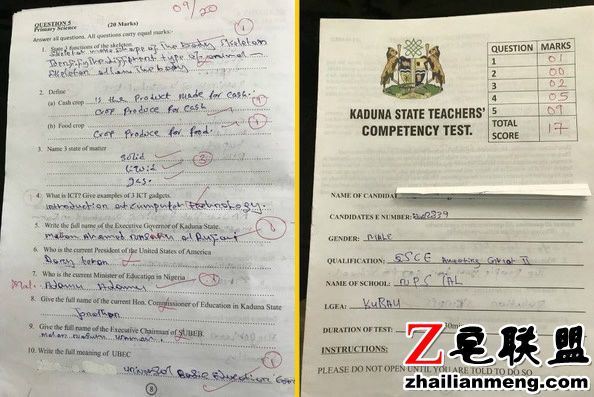 09/20
QUESTION 5 (20 Marks)
Primary Science
Answer all questions. All questions carry equal marks:-
1. State 2 functions of the skeleton.
Skeleton is the shape of the body skeleton
Identify the different type of animal
Skeleton
the body
2. Define
(a) Cash crop is the product made for cash.
Crop produce for cash
(b) Food crop
Crop produce for food.
3. Name 3 state of matter
Solid
Liquid
gas.
4. What is ICT? Give examples of 3 ICT gadgets.
introduction of computer technology.
5. Write the full name of the Executive Governor of Kaduna State.
6. Who is the current President of the United States of America
7. Who is the current Minister of Education in Nigeria
Adamu Adamu
8. Give the full name of the current Hon. Commissioner of Education in Kaduna State
Jonathan
9. Give the full name of the Executive Chairman of SUBEB.
10. Write the full meaning of UBEC
universal Basic Education
8
QUESTION MARKS
1 01
2 00
3 02
4 05
5 09
TOTAL SCORE 17
KADUNA STATE TEACHERS'
COMPETENCY TEST.
NAME OF CANDIDA
CANDIDATES E NUMBER:
GENDER: MALE
QUALIFICATION: SSCE
NAME OF SCHOOL: NPS
LGEA: KUBAU
DURATION OF TEST:
INSTRUCTIONS:
PLEASE DO NOT OPEN UNTIL YOU ARE TOLD TO DO SO
Z皂联盟
zhailianmeng.com